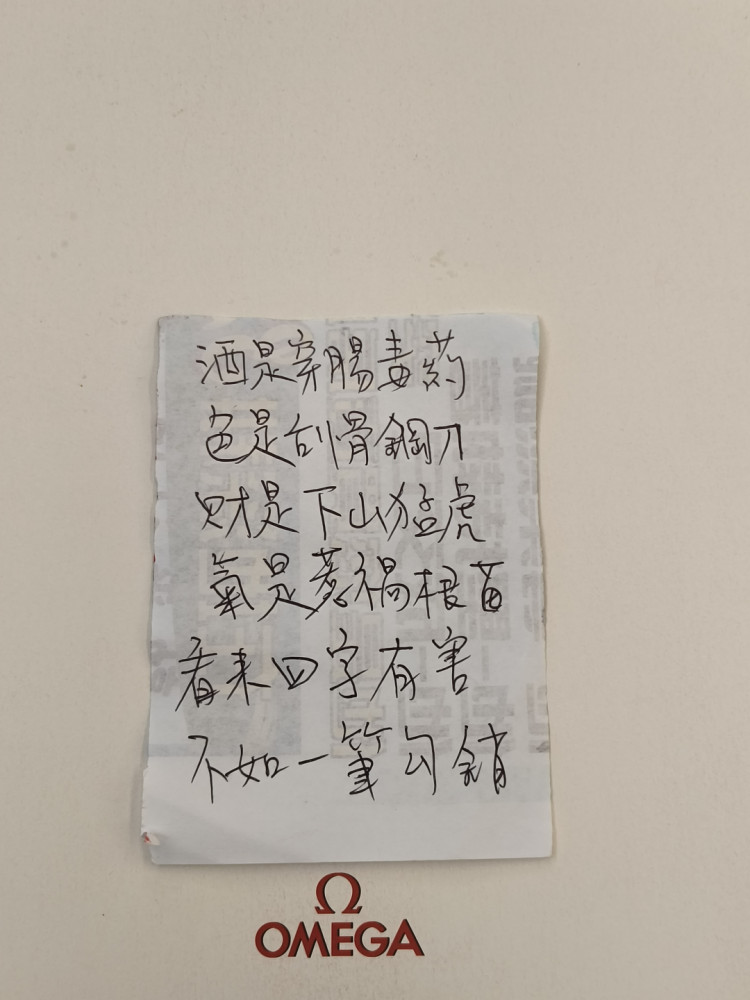 酒是穿腸毒药
色是刮骨鋼刀
财是下山猛虎
氣是惹禍根苗
看来四字有害
不如一筆勾銷
Ω
OMEGA